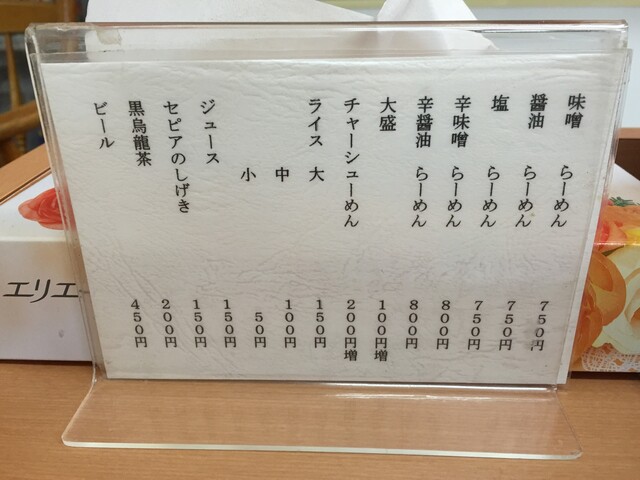 味噌 らーめん 750円
醤油 らーめん 750円
塩 らーめん 750円
辛味噌 らーめん 800円
辛醤油 らーめん 800円
大盛 100円増
チャーシューめん 200円増
ライス 大 150円
中 100円
小 50円
ジュース 150円
セピアのしげき 150円
黒烏龍茶 200円
ビール 450円
エリエ